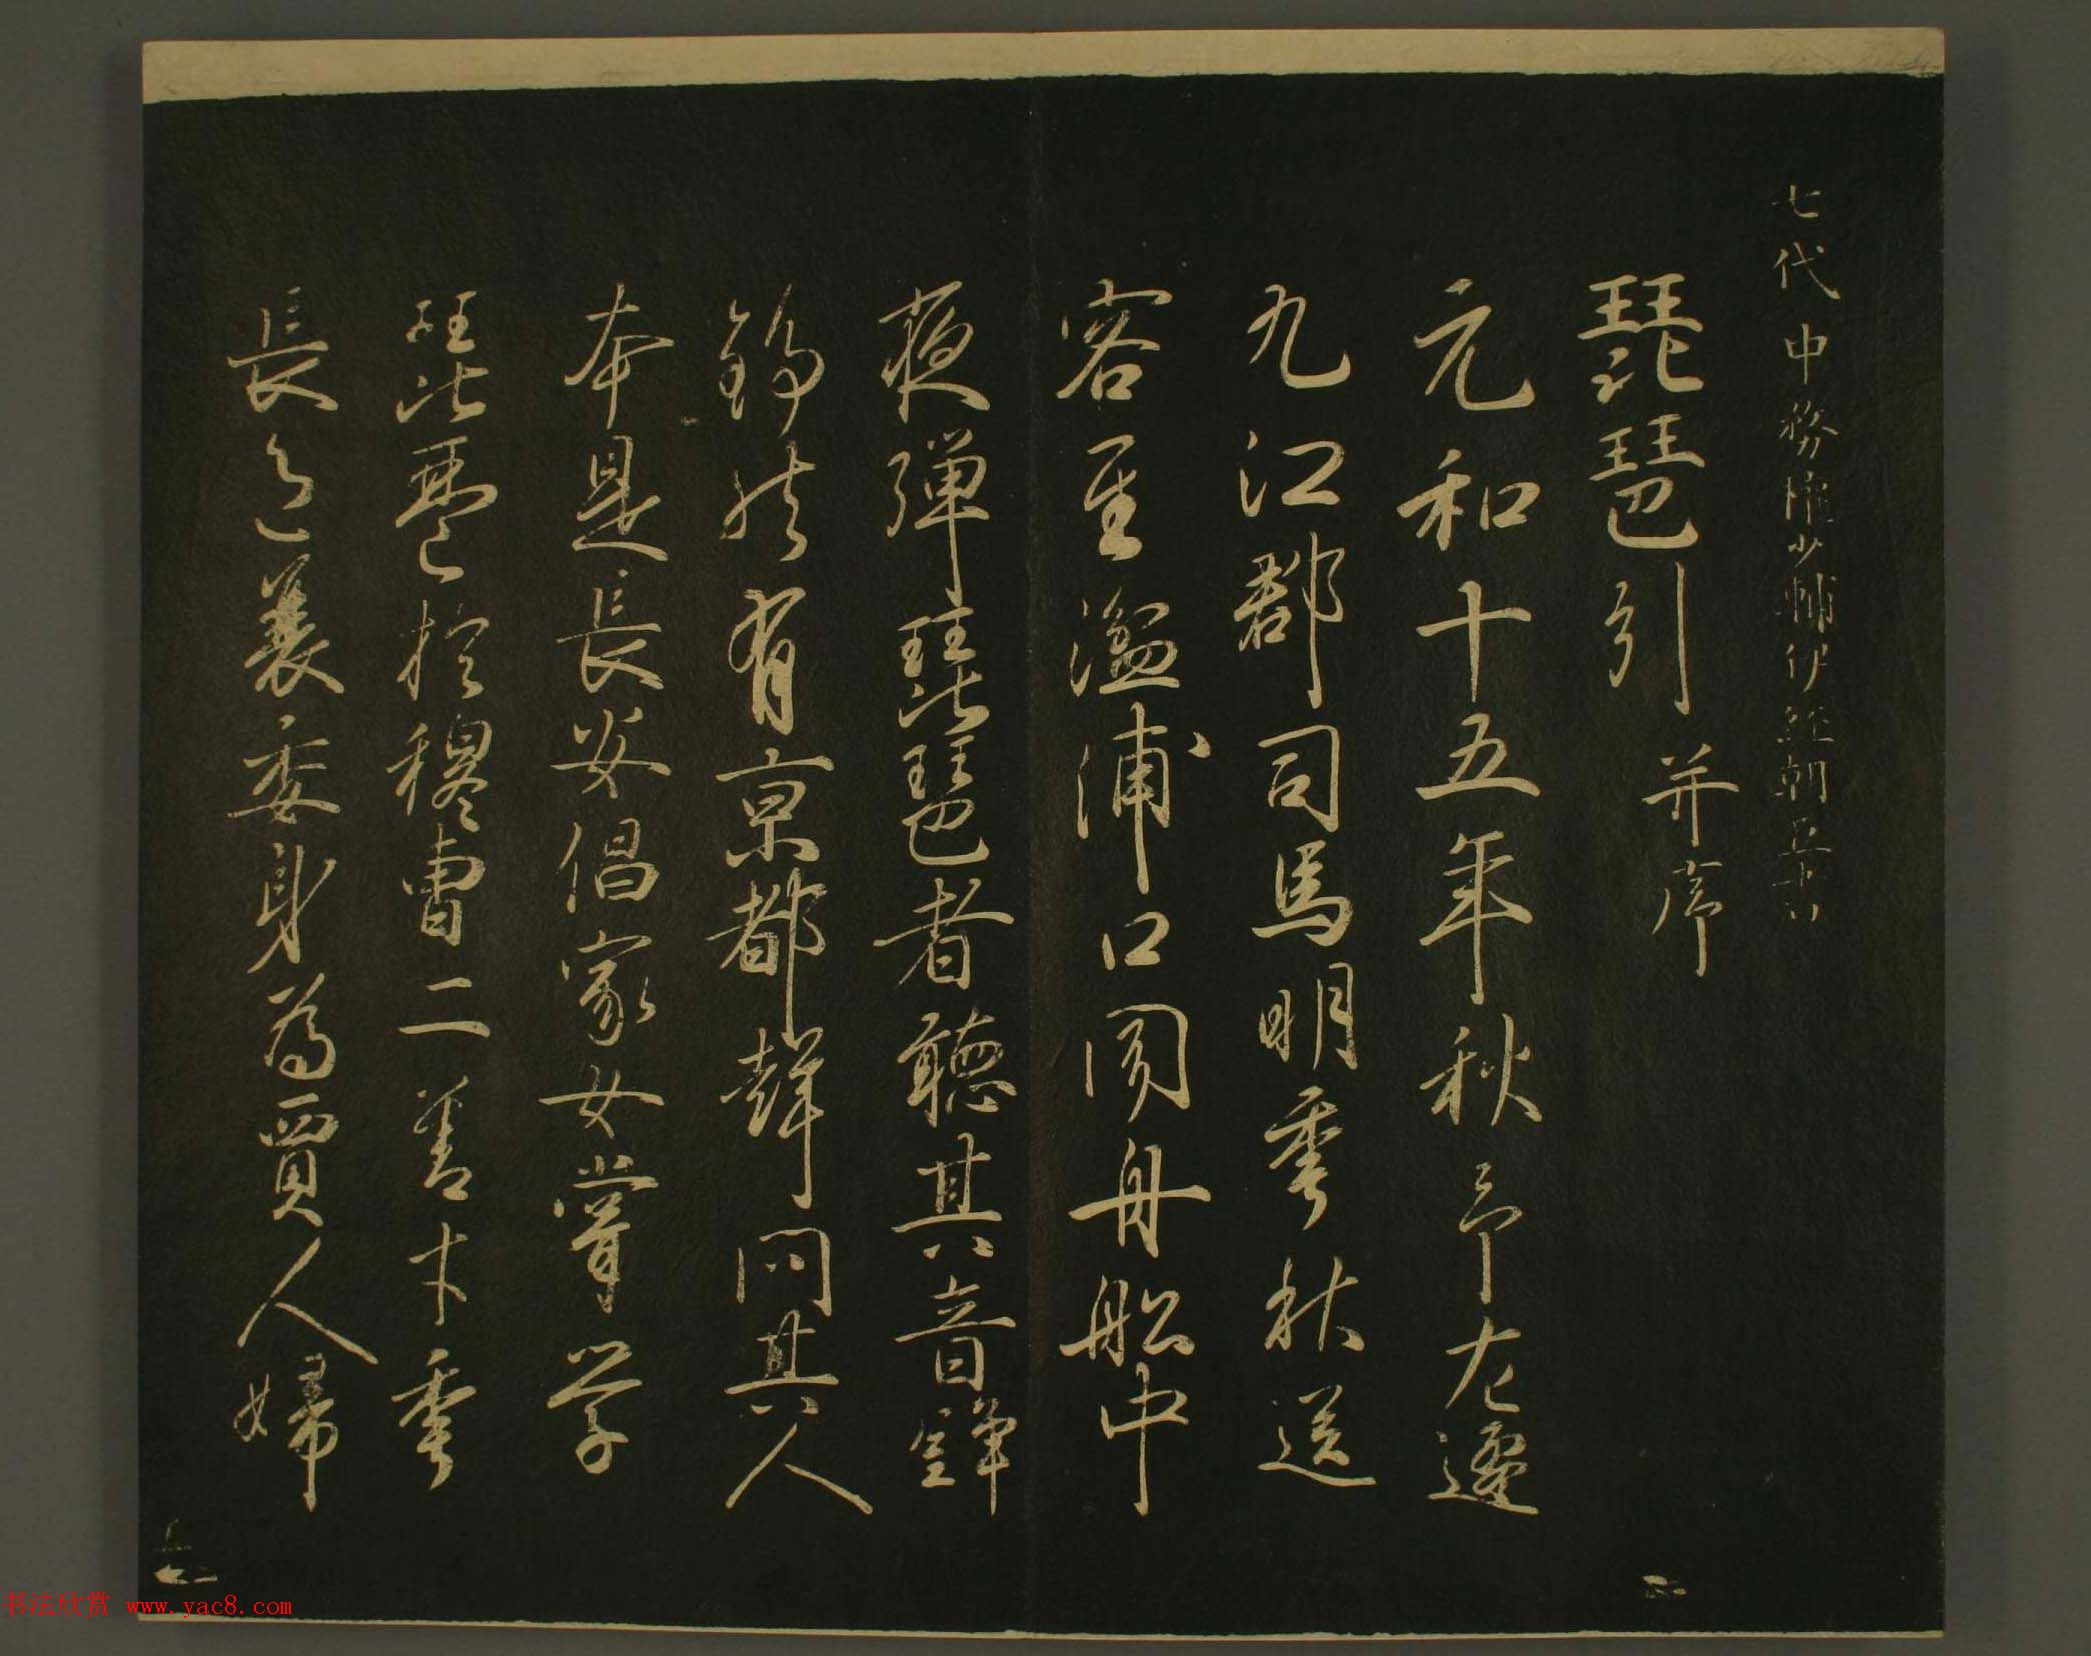 七代中務權少輔伊經朝臣書
琵琶引 并序
元和十五年秋予左遷
九江郡司馬明年秋送
客至湓浦口聞舟船中
夜弾琵琶者聽其音錚
錚然有京都聲問其人
本是長安倡家女甞學
琵琶於穆曹二善才年
長色衰委身為賈人婦
书法欣赏 www.yac8.com